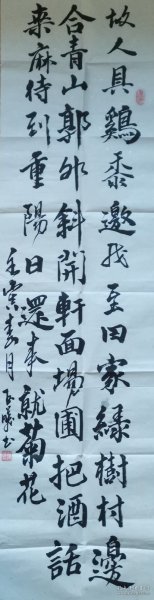 故人具鷄黍邀我至田家綠樹村邊
合青山郭外斜開軒面場圃把酒話
桑麻待到重陽日還来就菊花
壬寅春月